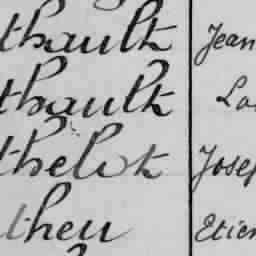 thault Jean
thault Lo
thelot Josep
theu Etien